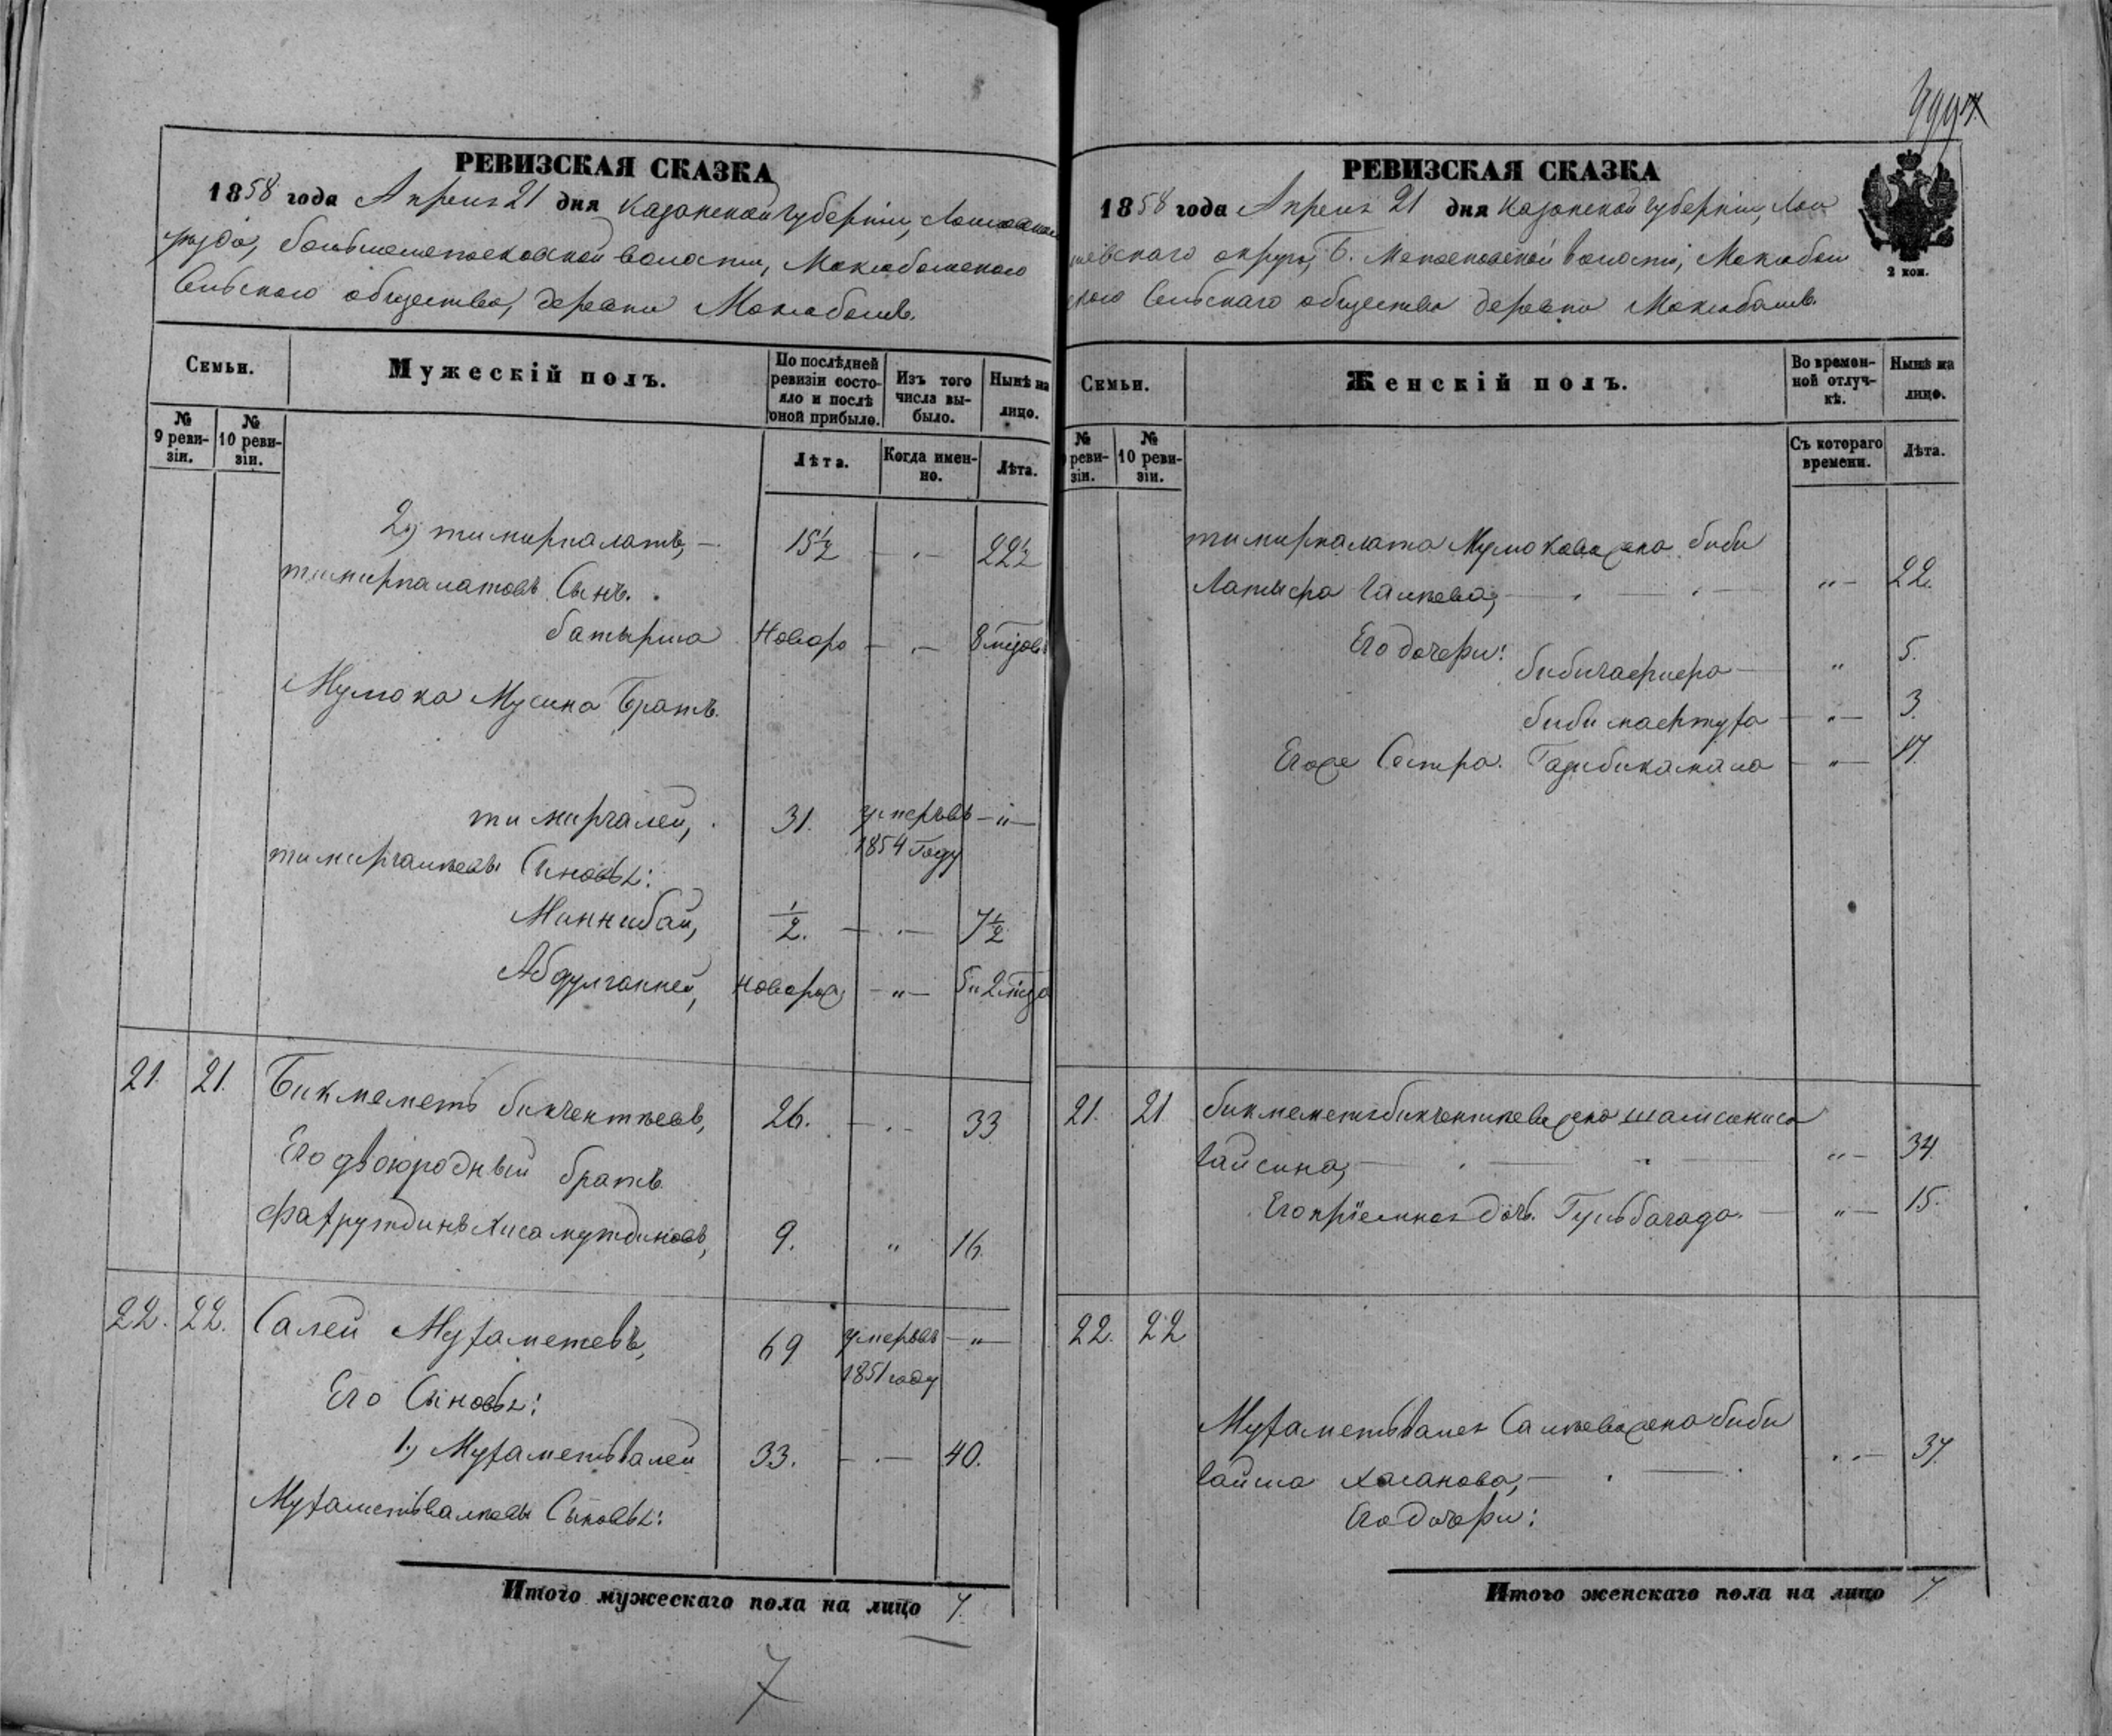 РЕВИЗСКАЯ СКАЗКА
1858 года Апреля 21 дня Казанской губерніи,
Мокло
Сельскаго общества, деревни
Семьи.
Мужескій полъ.
По послѣдней ревизіи состояло и послѣ оной прибыло.
Изъ того числа выбыло.
Нынѣ на лицо.
№ 9 ревизіи.
№ 10 ревизіи.
Лѣта.
Когда именно.
Лѣта.
2) тимирпалатъ, — 15½ — 22½
тимирпалатовъ Сынъ.
батырша Новоро — 8 мѣсцов
Мумока Мусина Братъ.
тимиргалей, 31. умеръ въ 1854 году — „ —
тимиргалѣевы Сыновья:
Миннибай, ½. — 7½
Абдулганней, новорож — „ — 5 и 2 мѣ
21. 21. Бикмеметъ бикчентѣевъ, 26. — 33
Его двоюродный братъ
Фахрутдинъ Хисамутдиновъ, 9. „ 16.
22. 22. Салей Мухаметевъ, 69 умеръ въ 1851 году — „ —
Его Сыновья:
1) Мухаметьвалей 33. — 40.
Мухаметьвалѣевы Сыновья:
Итого мужескаго пола на лицо 7.
7
РЕВИЗСКАЯ СКАЗКА
1858 года Апреля 21 дня Казанской губерніи, Лаи
шевскаго округа, Б. волости,
Сельскаго общества деревни
2 коп.
Семьи.
Женскій полъ.
Во временной отлучкѣ.
Нынѣ на лицо.
№ ревизіи.
№ 10 ревизіи.
Съ котораго времени.
Лѣта.
тимирпалата Мумокова жена биби
Галѣева, — „ — 22.
Его дочери:
„ 5.
биби махтуха — „ — 3.
Его же Сестра. Газибикамала — „ — 17.
21. 21 бикмемета бикчентѣева жена шамсиниса
Гайсина, — „ — 34.
Его пріемная дочь. Гульбагада. — „ — 15.
22. 22
Мухаметьвалея Салѣева жена биби
Гайша Хасанова, — 37.
Его дочери:
Итого женскаго пола на лицо 7.